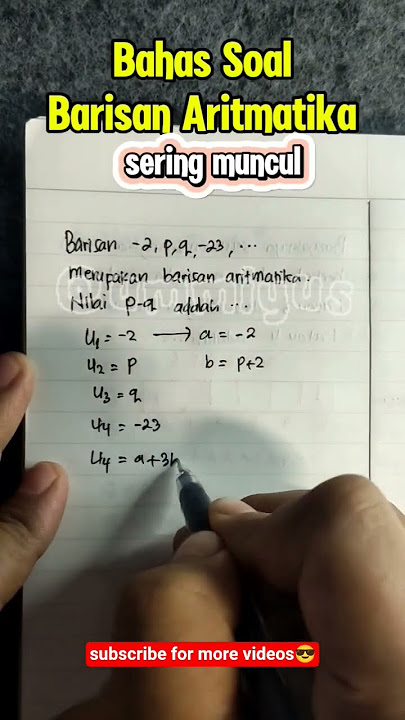 Bahas Soal
Barisan Aritmatika
sering muncul
Barisan -2, p, q, -23, ...
merupakan barisan aritmatika.
Nilai p-q adalah ...
U₁ = -2 → a = -2
U₂ = p b = p+2
U₃ = q
U₄ = -23
U₄ = a+3b
subscribe for more videos😎